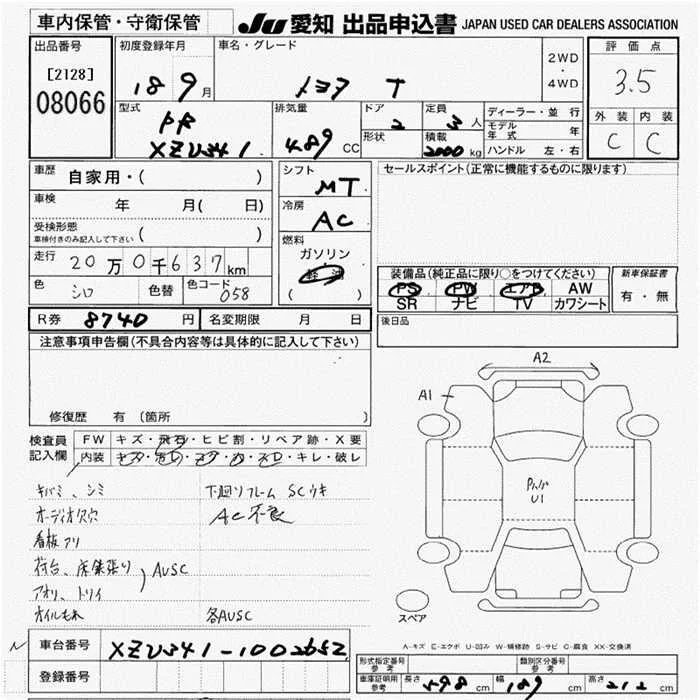 車内保管・守衛保管
JU 愛知 出品申込書 JAPAN USED CAR DEALERS ASSOCIATION
出品番号
[2128]
08066
初度登録年月
18 9 月
車名・グレード
トヨタ T
2WD
・
4WD
評価点
3.5
外装 内装
C C
型式
PR
XZU341
排気量
4.89 CC
ドア
2
形状
定員
3 人
積載
2000 kg
ディーラー・並 行
モデル年式 年
ハンドル 左・右
車歴
自家用・( )
車検
年 月( 日)
受検形態
車検付きのみ記入して下さい ( )
走行 20万0千637km
色 シロ 色替 色コード 058
シフト
MT
冷房
AC
燃料
ガソリン
軽油
( )
セールスポイント(正常に機能するものに限ります)
装備品(純正品に限り○をつけてください)
PS PW エアB AW
SR ナビ TV カワシート
新車保証書
有・無
後日品
R券 8740 円 名変期限 月 日
注意事項申告欄(不具合内容等は具体的に記入して下さい)
修復歴 有 (箇所 )
検査員記入欄
FW キズ・飛石・ヒビ割・リペア跡・X要
内装 キズ・汚レ・コゲ・穴・スレ・キレ・破レ
キバミ、シミ
オーディオ欠穴
看板アリ
荷台、床鉄張り
アオリ、トリイ
AUSC
オイルもれ
下廻りフレーム SCウキ
AC不良
各AUSC
A2
A1
U1
スペア
A-キズ E-エクボ U-凹み W-補修跡 S-サビ C-腐食 XX-交換済
車台番号 XZU341-1002652
登録番号
形式指定番号
参考
類別区分番号
参考
車庫証明用
参考
長さ 598 cm 幅 189 cm 高さ 212 cm